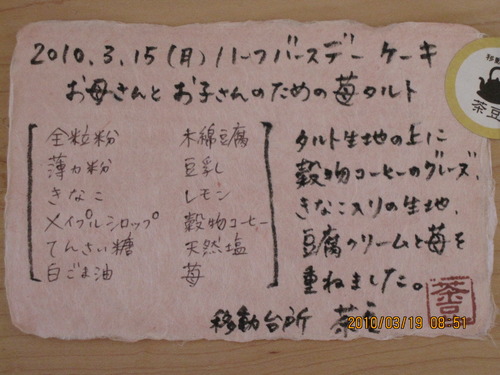 2010.3.15(月)ハーフバースデーケーキ
お母さんとお子さんのための苺タルト
全粒粉
薄力粉
きなこ
メイプルシロップ
てんさい糖
白ごま油
木綿豆腐
豆乳
レモン
穀物コーヒー
天然塩
苺
タルト生地の上に
穀物コーヒーのグレーズ、
きなこ入りの生地、
豆腐クリームと苺を
重ねました。
移動台所 茶豆
茶豆
2010/03/19 08:51